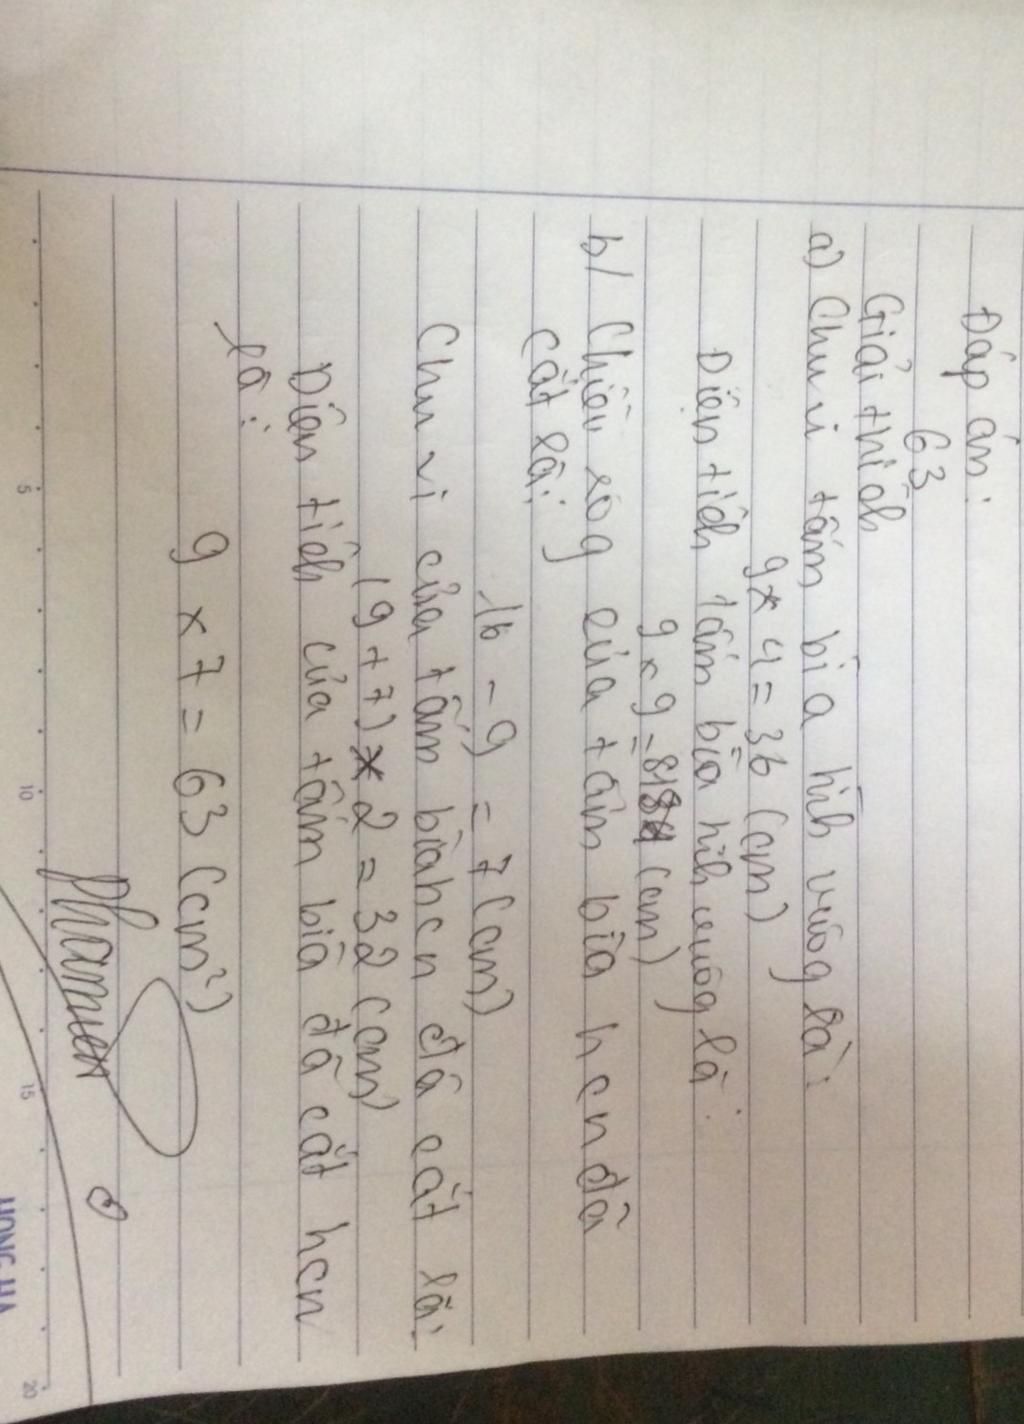 Đáp án:
63
Giải thích
a) Chu vi tấm bìa hình vuông là:
9 x 4 = 36 (cm)
Diện tích tấm bìa hình vuông là:
9 x 9 = 81 (cm)
b/ Chiều rộg của tấm bìa hcn đã
cắt là:
16 - 9 = 7 (cm)
Chu vi của tấm bìa hcn đã cắt là:
(9 + 7) x 2 = 32 (cm)
Diện tích của tấm bìa đã cắt hcn
là:
9 x 7 = 63 (cm²)
5 10 15 20
HONG HA